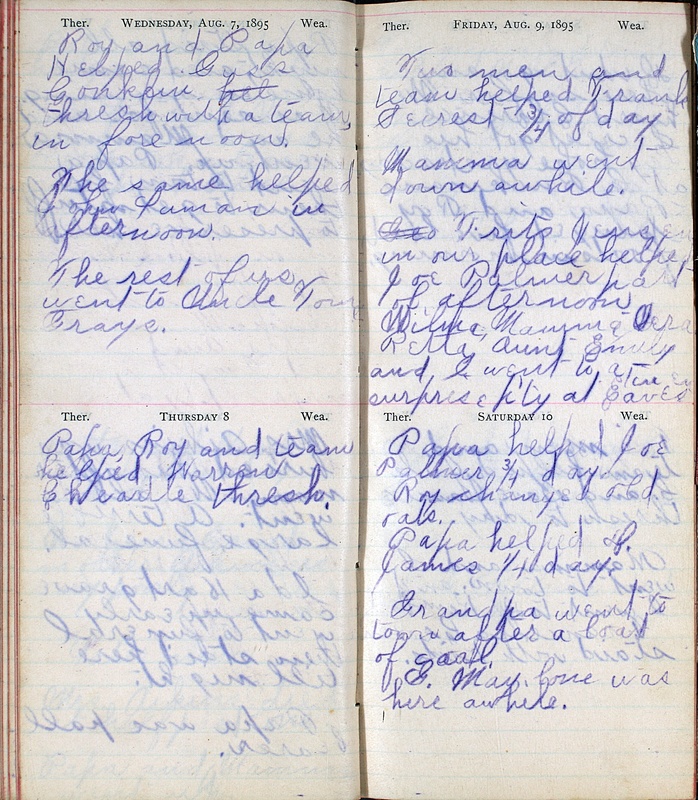 Ther. WEDNESDAY, AUG. 7, 1895 Wea.
Roy and Papa
Helped Goss
Conkem
thresh with a team,
in forenoon.
The same helped
John Laman in
fternoon.
The rest of us
went to Uncle Tom
Grays.
Ther. THURSDAY 8 Wea.
Papa, Roy and team
helped Warren
Cheadle thresh.
Ther. FRIDAY, AUG. 9, 1895 Wea.
Two men and
team helped Frank
Secrest 3/4 of day
Mamma went
down awhile.
Frits Jensen
in our place helped
Joe Palmer part
of afternoon
Wilma, Mamma Vera
Retta, Aunt Emily
and I went to a
surprise p'ty at Eaves
Ther. SATURDAY 10 Wea.
Papa helped Joe
Palmer 3/4 day.
Roy old
oats.
Papa helped
James 1/4 day.
Grandpa went to
town after a load
of coal.
G. May. was
here awhile.